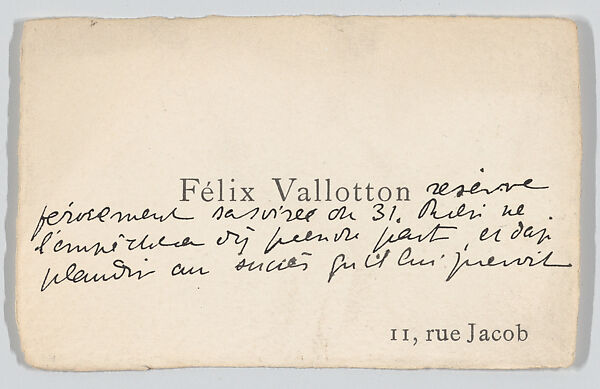 Félix Vallotton reserve
férocement sa soirée du 31. Rien ne
l'empêchera d'y prendre part, et d'ap-
plaudir au succès qu'il lui prévoit
11, rue Jacob